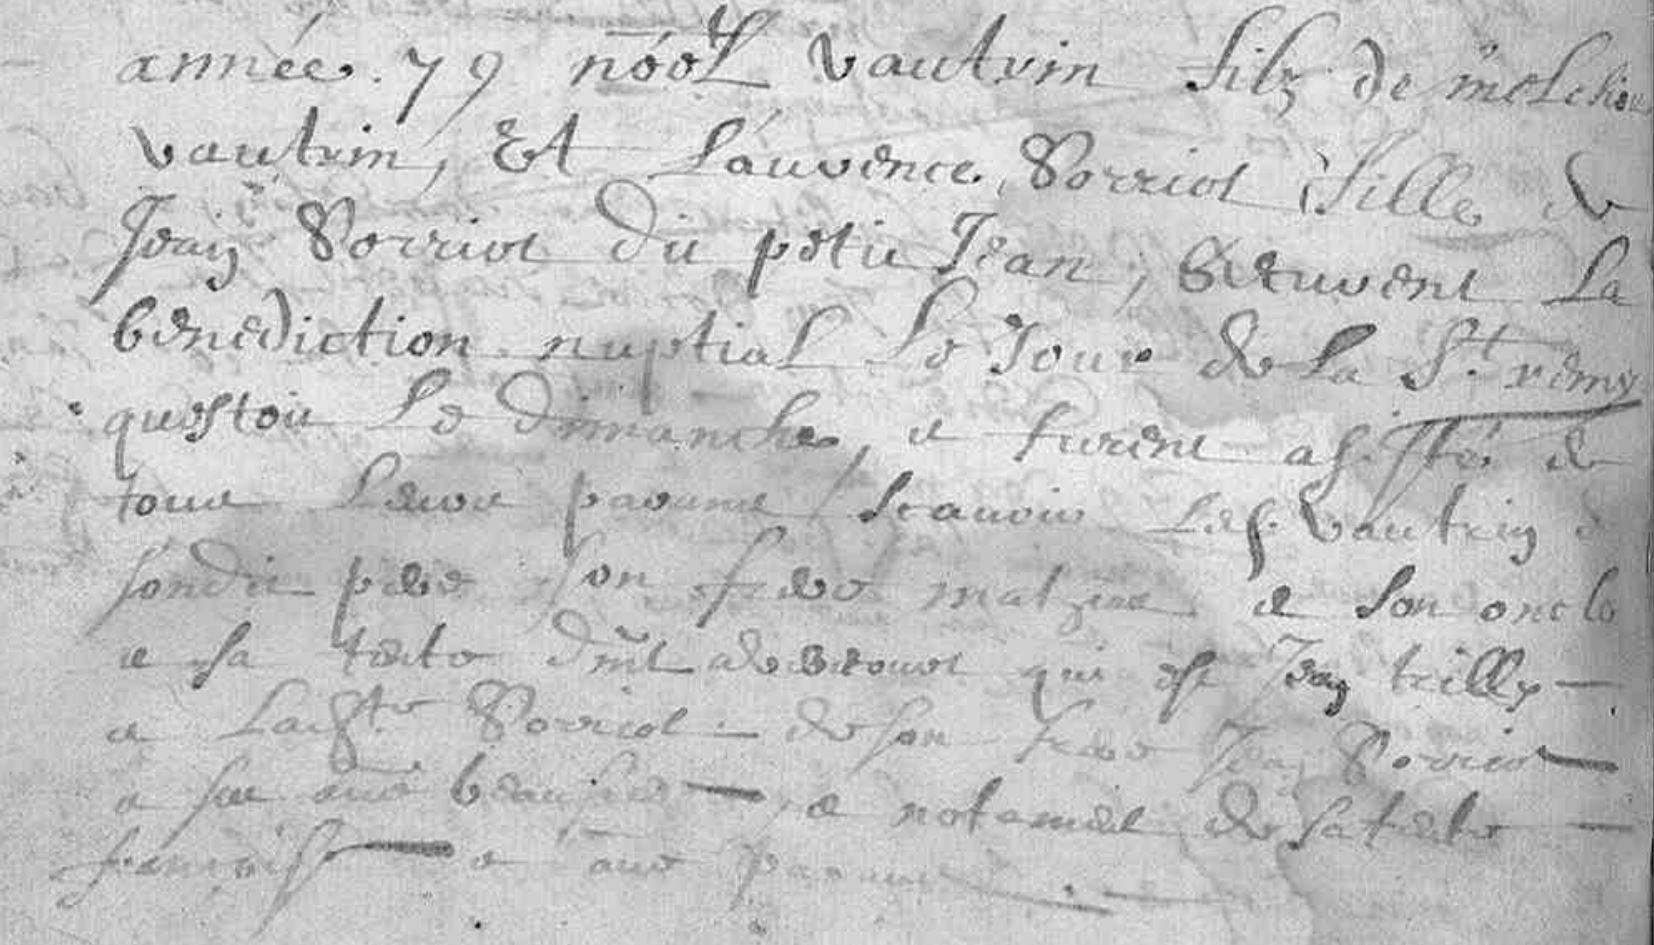 année . 79 nóól vautrin filz de melchior
vautrin, Et Laurence Porriot fille de
Jean Porriot du petit Jean, Receurent la
benediction nuptial le Jour de la St. remy
questoit le dimanche, et furent assisté de
tout leurs parent scauoir les vautrin
sondit pere son frere et son oncle
et sa tante qui est Jean trilly
a Porriot de son frere Jean Porriot
a beaufrere et notament de sa tante
et autre parent